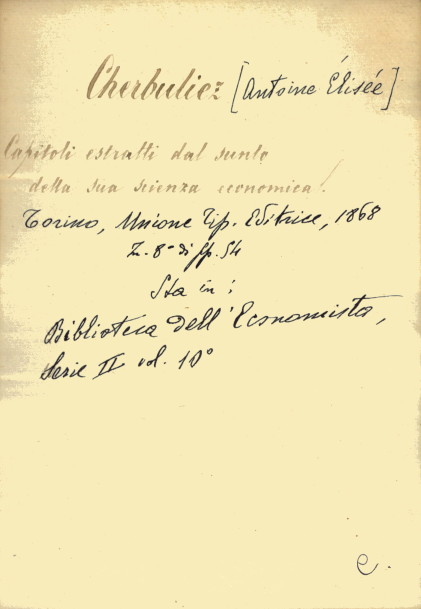 Cherbuliez [Antoine Élisée]
Capitoli estratti dal sunto
della sua scienza economica.
Torino, Unione Tip. Editrice, 1868
In. 8º di pp. 54
Sta in:
Biblioteca dell'Economista,
Serie II vol. 10º
e.